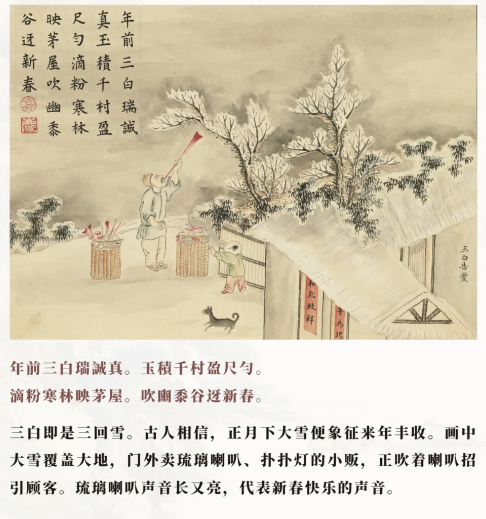 年前三白瑞誠
真玉積千村盈
尺勻滴粉寒林
映茅屋吹豳黍
谷迓新春
三白告豐
和氣致祥
年前三白瑞誠真。玉積千村盈尺勻。
滴粉寒林映茅屋。吹豳黍谷迓新春。
三白即是三回雪。古人相信，正月下大雪便象征来年丰收。画中
大雪覆盖大地，门外卖琉璃喇叭、扑扑灯的小贩，正吹着喇叭招
引顾客。琉璃喇叭声音长又亮，代表新春快乐的声音。